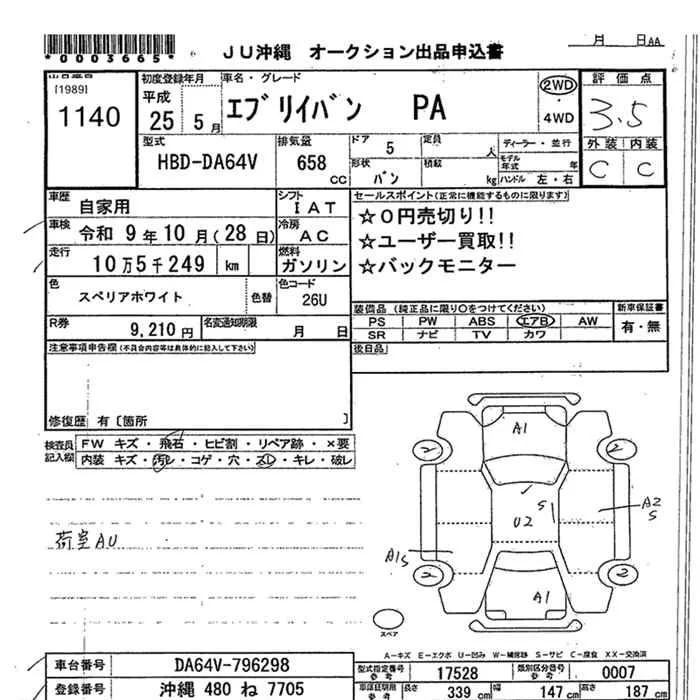 *0003665*
JU沖縄 オークション出品申込書
月 日AA
[1989]
1140
初度登録年月
平成
25 5月
車名・グレード
エブリイバン PA
2WD
4WD
評価点
3.5
外装 内装
C C
型式
HBD-DA64V
排気量
658
CC
ドア
5
定員
人
形状
バン
積載
kg
ディーラー・並行
モデル年式 年
ハンドル 左・右
車歴
自家用
シフト
IAT
車検
令和 9年10月(28日)
冷房
AC
走行
10万5千249 km
燃料
ガソリン
色
スペリアホワイト
色替
色コード
26U
R券
9,210円
名変通知期限
月 日
セールスポイント(正常に機能するものに限ります)
☆0円売切り!!
☆ユーザー買取!!
☆バックモニター
装備品 (純正品に限り○をつけてください)
PS PW ABS エアB AW
SR ナビ TV カワ
新車保証書
有・無
後日品
注意事項申告欄(不具合内容等は具体的に記入して下さい)
修復歴 有〔箇所 〕
検査員記入欄
FW キズ・飛石・ヒビ割・リペア跡・×要
内装 キズ・汚レ・コゲ・穴・スレ・キレ・破レ
荷室AU
A1
2
2
S
U2
A2
S
A1S
2
2
A1
スペア
A-キズ E-エクボ U-凹み W-補修跡 S-サビ C-腐食 XX-交換済
車台番号
DA64V-796298
登録番号
沖縄 480 ね 7705
型式指定番号
参考
17528
類別区分番号
参考
0007
参考
長さ 339 cm
幅 147 cm
高さ 187 cm